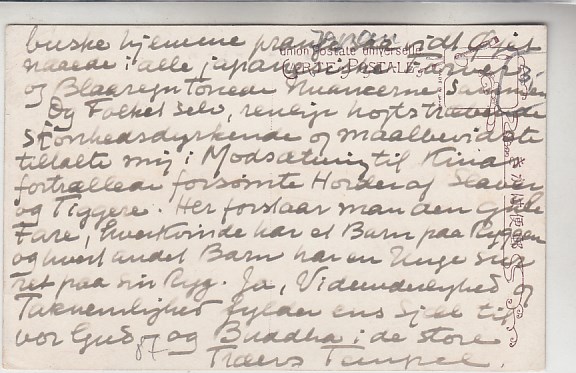 buske hjemme prang saa vidt Øjet
union postale universelle
CARTE POSTALE
naaede i alle japanske Farver
og Blaaregntonede Nuancerne Sammen
Og Folket selv, renlig højtstræbende
Skønhedsdyrkende og maalbevidste
tiltalte mig i Modsætning til Kina
fortrællede forsømte Horder af Slaver
og Tiggere. Her forstaar man den gule
Fare, hver Kvinde har et Barn paa Ryggen
og hvert andet Barn har en Unge
paa sin Ryg. Ja, Vidunderlighed og
Taknemlighed fylder ens Sjæl til
vor Gud og Buddha i de store
Træers Tempel.
87